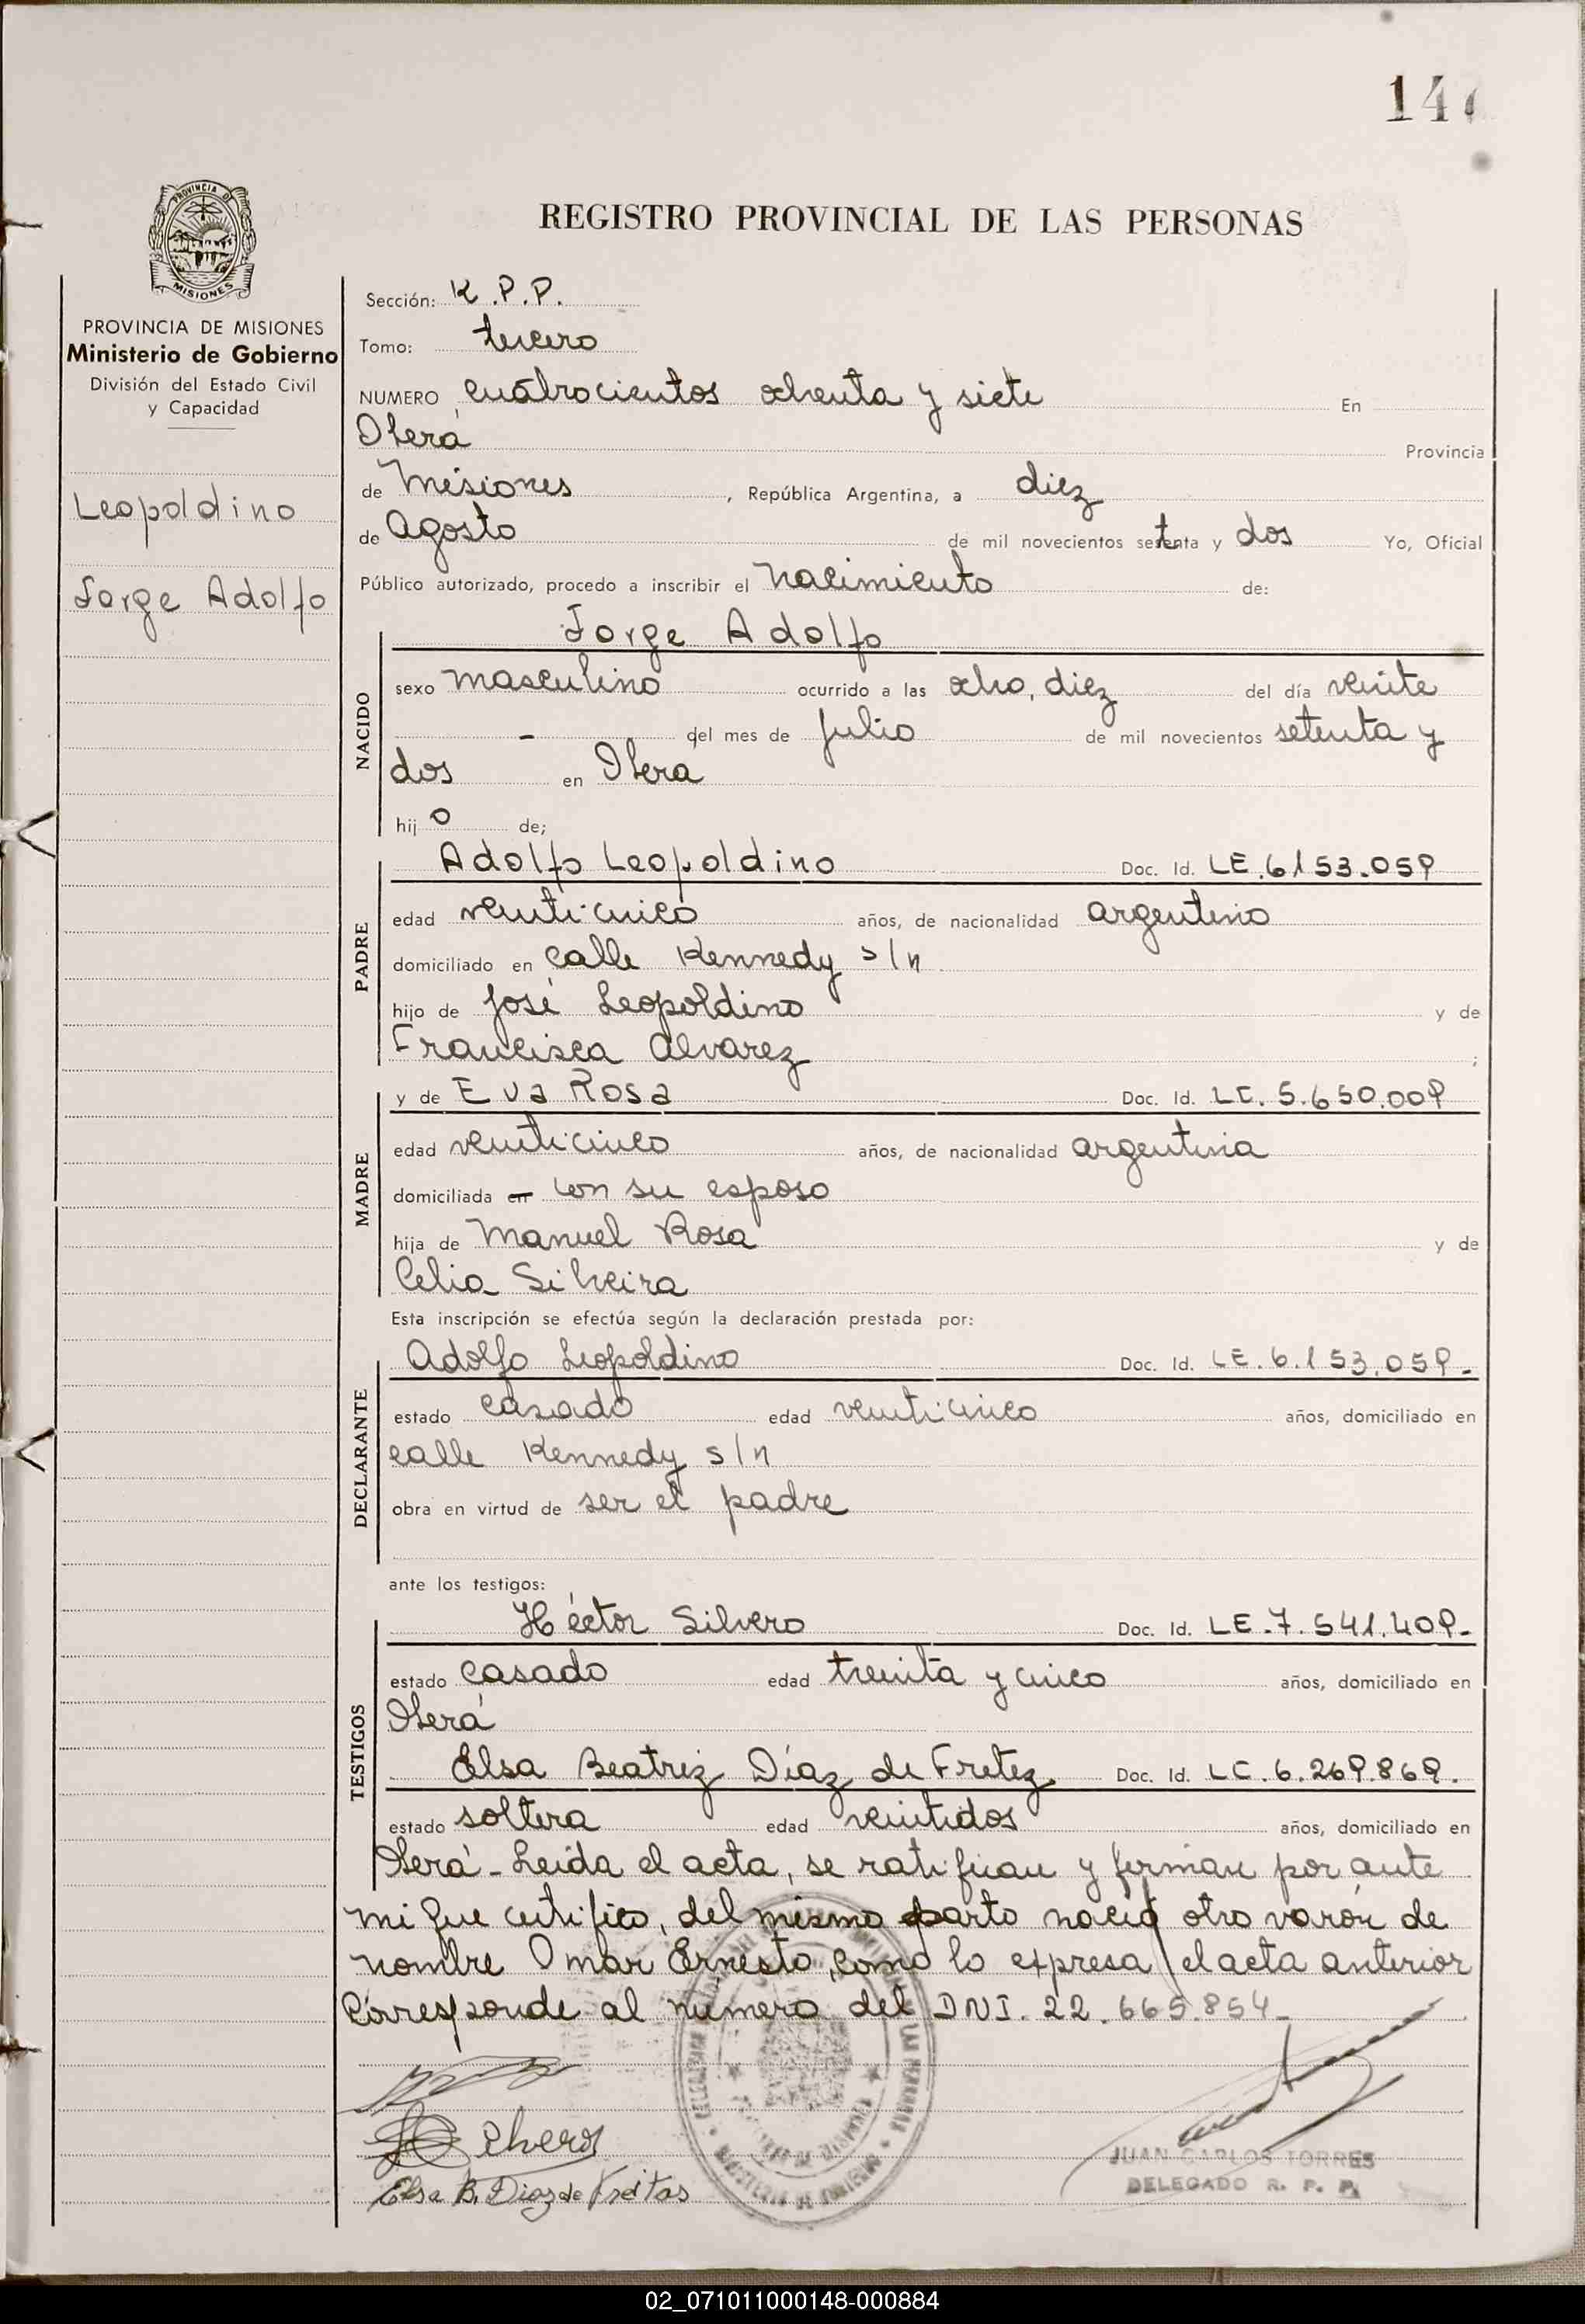 147
PROVINCIA DE
MISIONES
REGISTRO PROVINCIAL DE LAS PERSONAS
PROVINCIA DE MISIONES
Ministerio de Gobierno
División del Estado Civil
y Capacidad
Leopoldino
Jorge Adolfo
Sección: R.P.P.
Tomo: tercero
NUMERO cuatrocientos ochenta y siete En
Oberá Provincia
de Misiones, República Argentina, a diez
de Agosto de mil novecientos setenta y dos Yo, Oficial
Público autorizado, procedo a inscribir el Nacimiento de:
Jorge Adolfo
NACIDO
sexo masculino ocurrido a las ocho, diez del día veinte
- del mes de Julio de mil novecientos setenta y
dos en Obera
hijo de;
PADRE
Adolfo Leopoldino Doc. Id. LE.6153.059
edad veinticinco años, de nacionalidad argentino
domiciliado en calle Kennedy s/n
hijo de José Leopoldino y de
Francisca Alvarez ;
MADRE
y de Eva Rosa Doc. Id. LC. 5.650.009
edad veinticinco años, de nacionalidad argentina
domiciliada en con su esposo
hija de Manuel Rosa y de
Celia Silveira
Esta inscripción se efectúa según la declaración prestada por:
DECLARANTE
Adolfo Leopoldino Doc. Id. LE.6.153.059-
estado casado edad veinticinco años, domiciliado en
calle Kennedy s/n
obra en virtud de ser el padre
ante los testigos:
TESTIGOS
Héctor Silvero Doc. Id. LE.7.541.409-
estado casado edad treinta y cinco años, domiciliado en
Oberá
Elsa Beatriz Díaz de Fretez Doc. Id. LC.6.269.869.
estado soltera edad veintidos años, domiciliado en
Oberá - Leida el acta, se ratifican y firman por ante
mi que certifico, del mismo parto nació otro varón de
nombre Omar Ernesto, como lo expresa el acta anterior
Corresponde al número del DNI. 22.665.854-
Silvero
Elsa B. Diaz de Freitas
JUAN CARLOS TORRES
DELEGADO R. P. P.
02_071011000148-000884